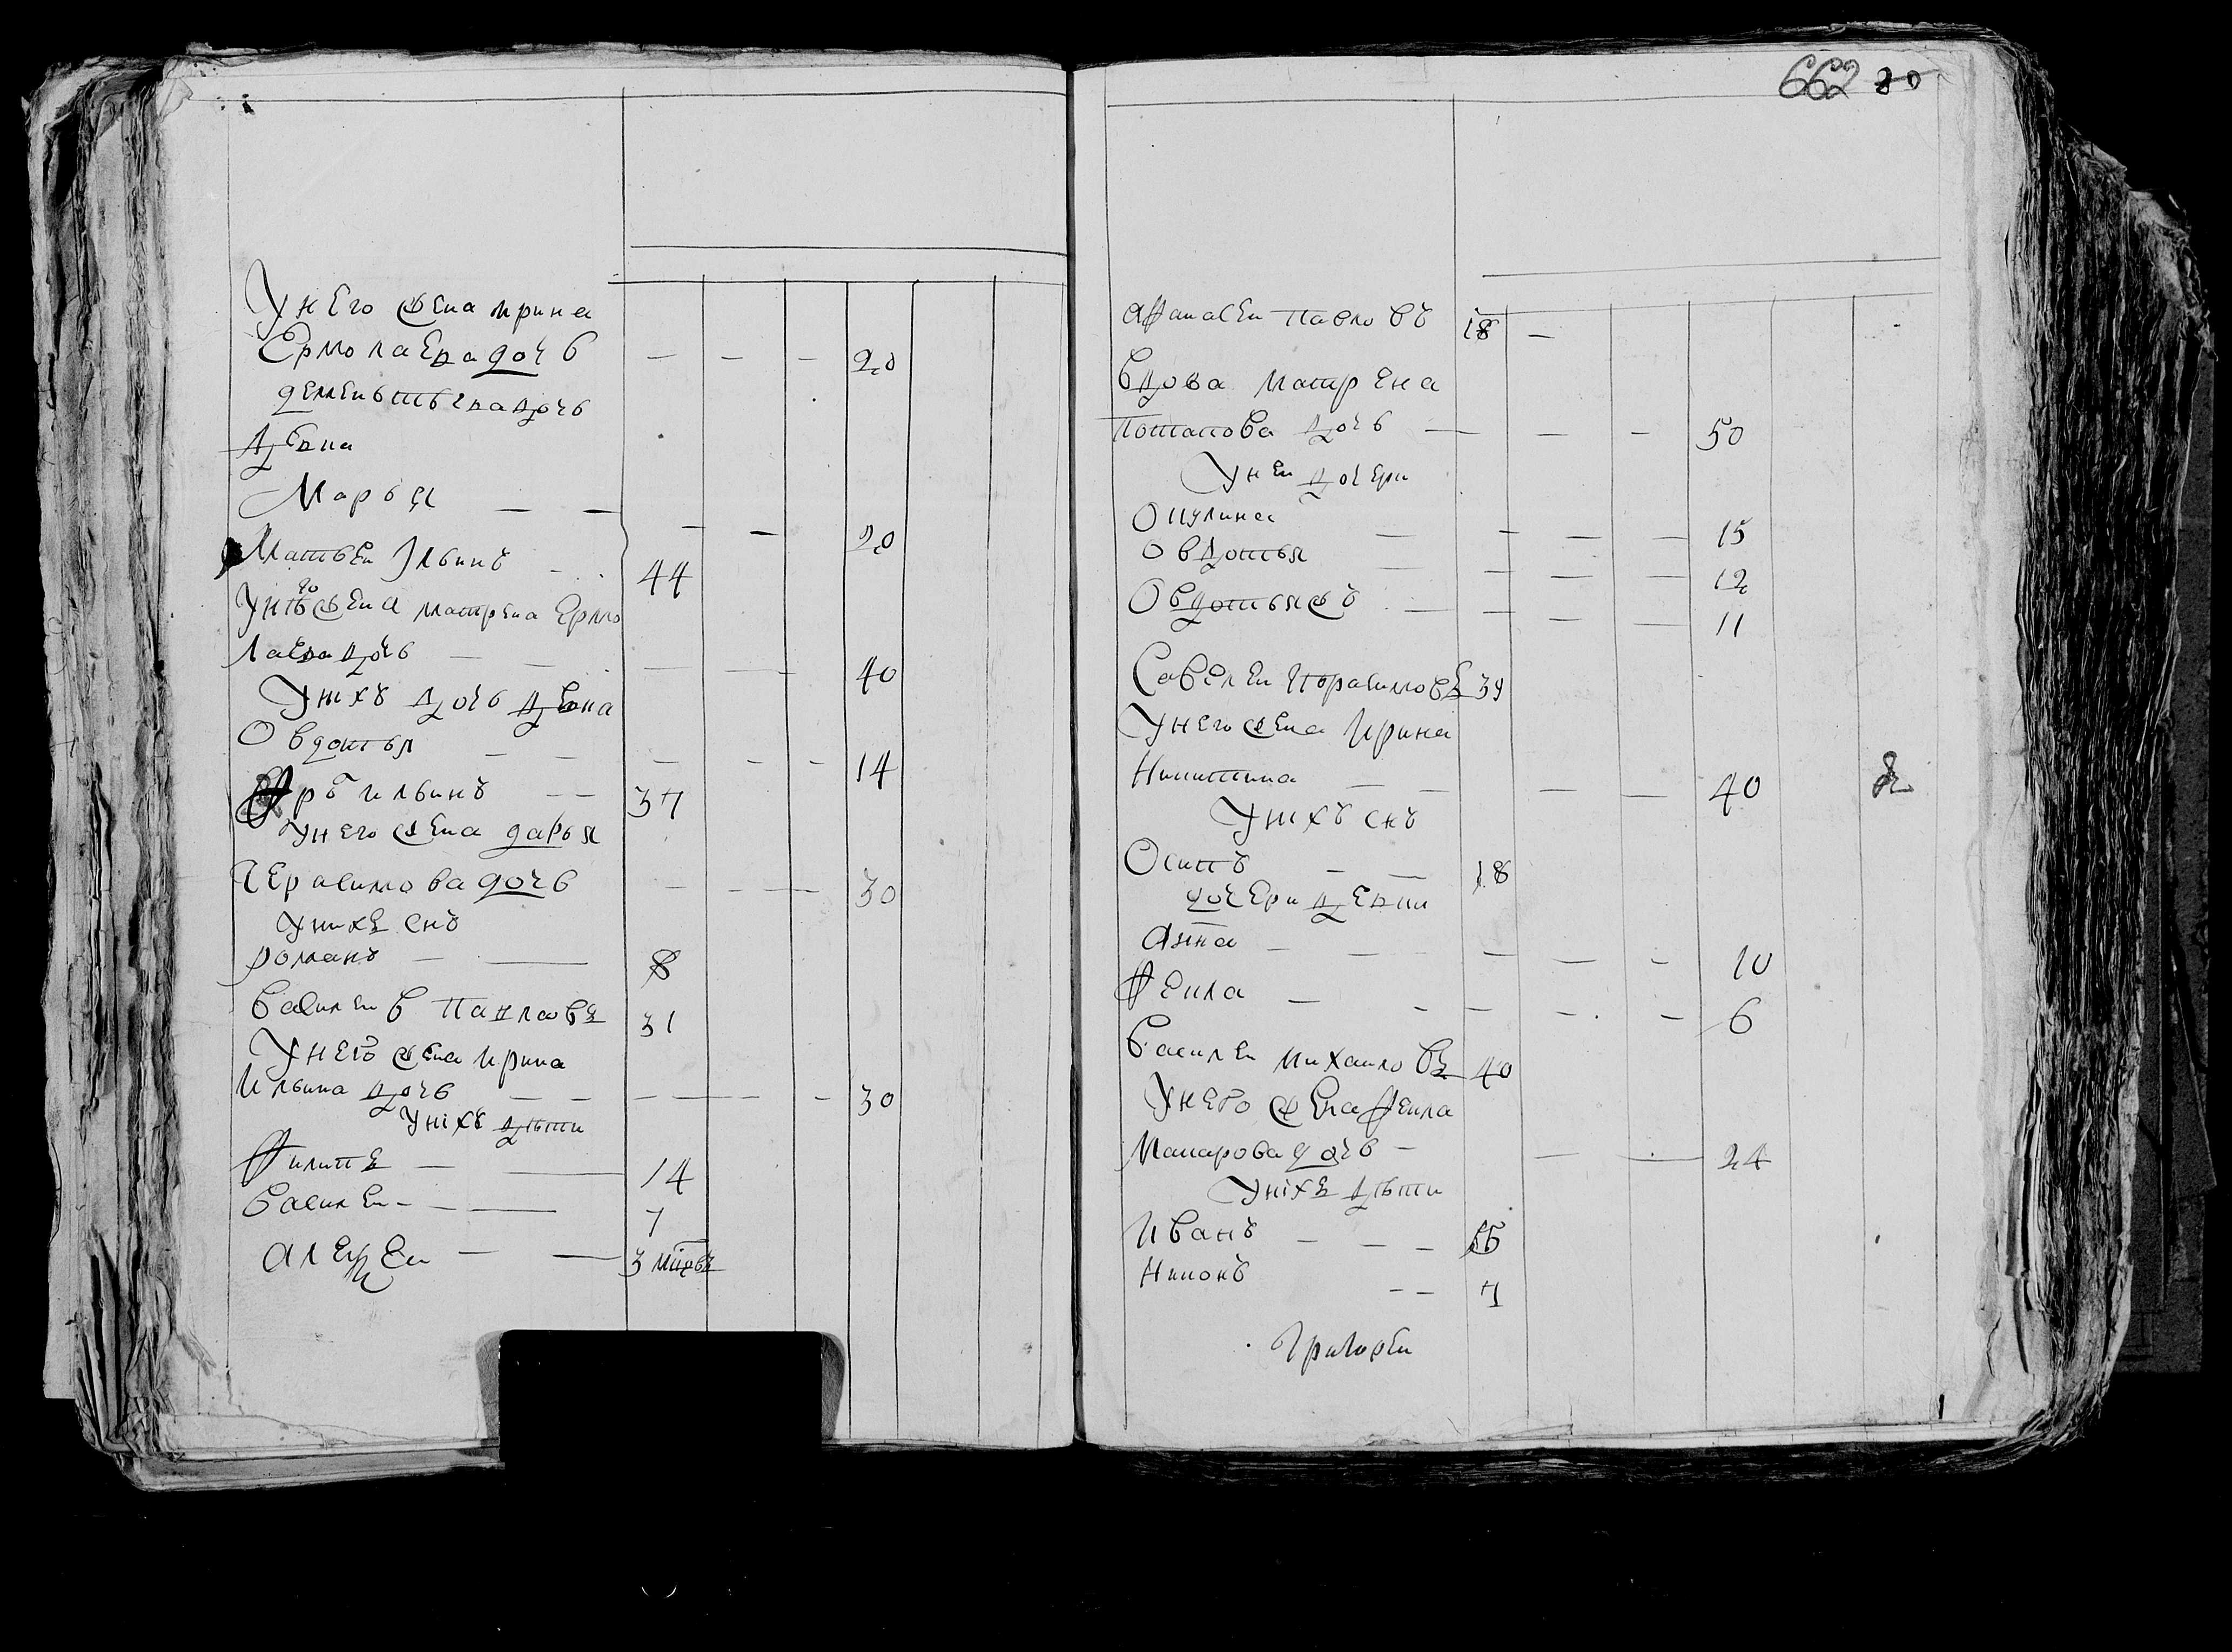 Унего жена ирина
Ермолаева дочь — — — 20
дементьева дочь
девка
Марья — — — — 20
Матвеи Ильинъ 44
Унѣго жена матрена Ермо
лаева дочь — — — — 40
Унихъ дочь девка
Овдотья — — — — — 14
ильинъ — — 37
Унего жена дарья
Герасимова дочь — — — 30
Унихъ снъ
романъ — — 8
Василеи Павловъ 31
Унего жена ирина
Ильина дочь — — — — — 30
Уніхъ дѣти
Филипъ — — 14
Василеи — — — 7
Алеѯеи — — 3
662 20
Афанасеи Павловъ 18 —
Вдова матрена
Потапова дочь — — — 50
Унеи дочери
Окулина — — — — 15
Овдотья — — — — 12
Овдотьяжъ — — — — 11
Савелеи Герасимовъ 39
Унего жена Ирина
Никитина — — — — 40
Унихъ снъ
Осипъ — — 18
дочери девки
Анна — — — — — — 10
Фекла — — — — — 6
Василеи михаиловъ 40
Унего жена Фекла
Макарова дочь — — — 24
Уніхъ дѣти
Иванъ — — — 15
Никонъ — — 7
Григореи